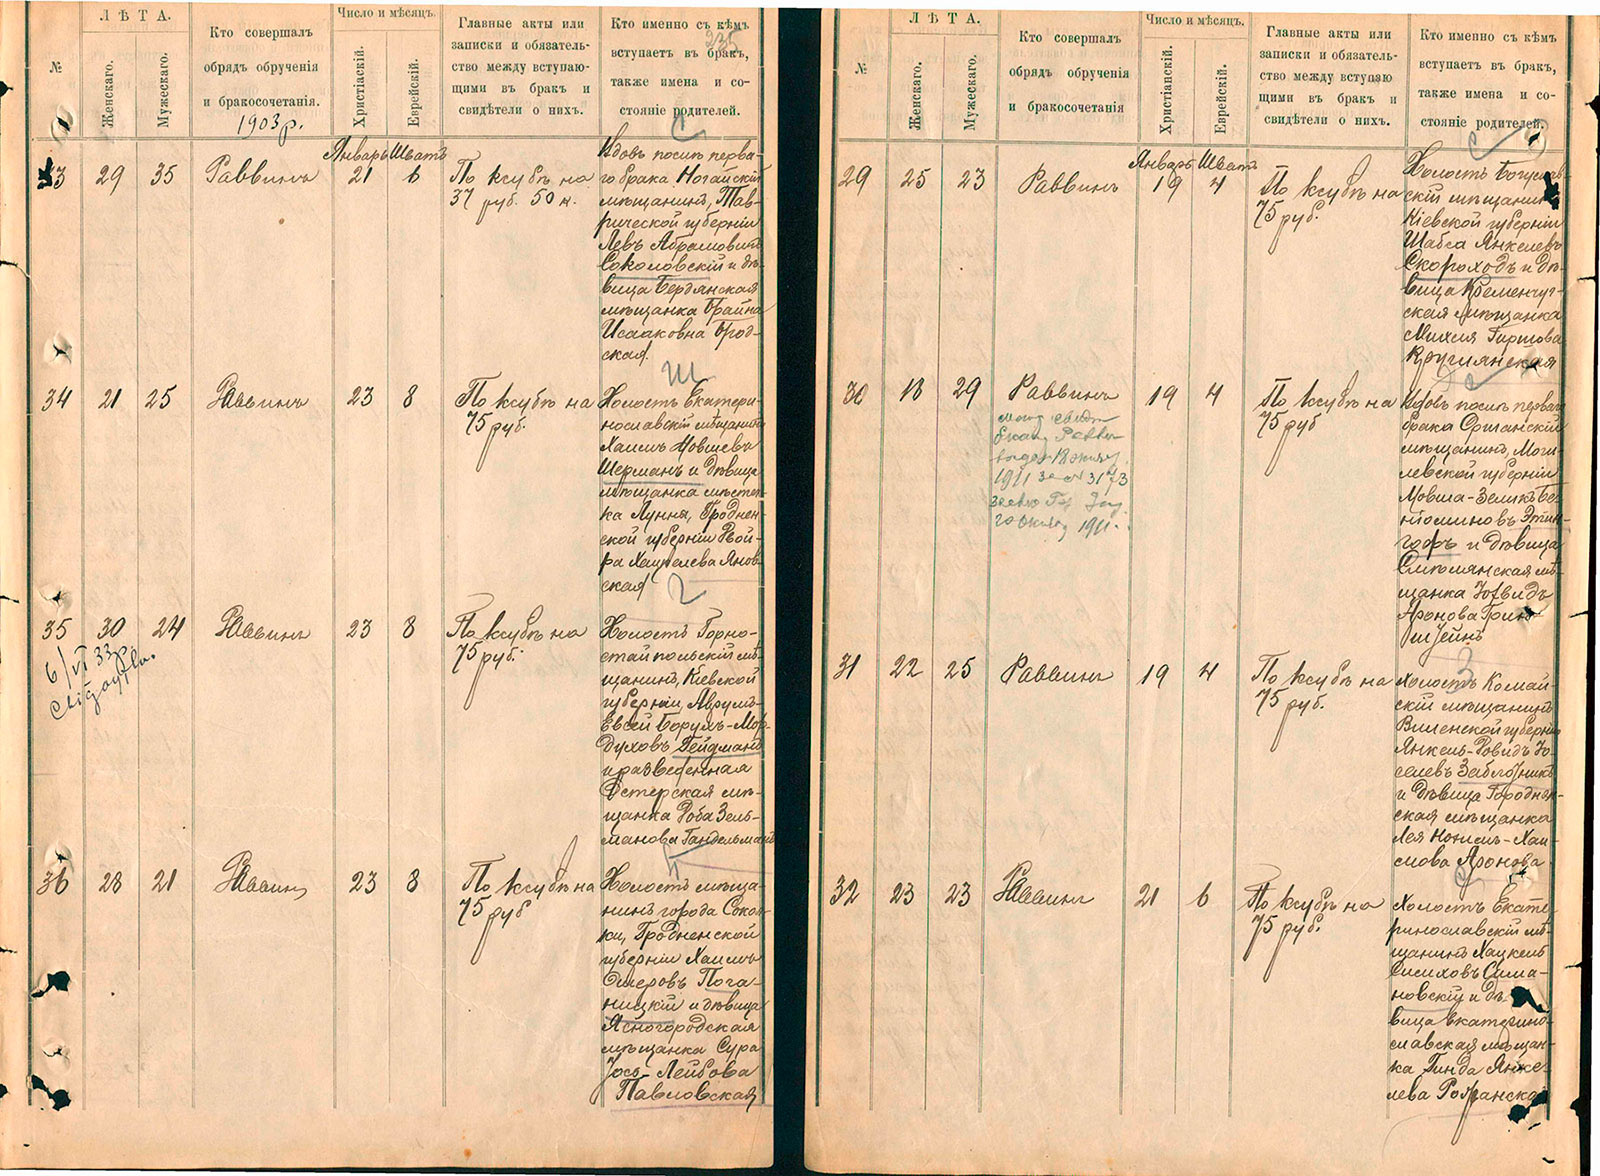 Л Ѣ Т А.
Число и мѣсяцъ.
№
Женскаго.
Мужескаго.
Кто совершалъ
обрядъ обрученія
и бракосочетанія.
1903 р.
Христіаскій.
Еврейскій.
Главные акты или
записки и обязатель-
ство между вступаю-
щими въ бракъ и
свидѣтели о нихъ.
Кто именно съ кѣмъ
235
вступаетъ въ бракъ,
также имена и со-
стояніе родителей.
Январь Шватъ
33 29 35 Раввинъ 21 6
По ксубѣ на
37 руб. 50 к.
Вдовъ послѣ перва-
го брака Ногайскій
мѣщанинъ, Тав-
рической губерніи
Левъ Абрамовичъ
Соколовскій и дѣ-
вица Бердянская
мѣщанка Брайна
Исааковна Брод-
ская.
Ш
34 21 25 Раввинъ 23 8
По ксубѣ на
75 руб.
Холостъ Екатери-
нославскій мѣщанинъ
Хаимъ Мовшевъ
Шерманъ и дѣвица
мѣщанка мѣстеч-
ка Лунна, Гроднен-
ской губерніи Двой-
ра Хацкелева Янов-
ская
Г
35 30 24 Раввинъ 23 8
6/VI 33 р.
По ксубѣ на
75 руб.
Холостъ Горно-
стайпольскій мѣ-
щанинъ, Кіевской
губерніи, Аврумъ-
Евсей Борухъ-Мор-
духовъ Гейдманъ
и разведенная
Остерская мѣ-
щанка Доба Зель-
манова Гандельманъ
П
36 28 21 Раввинъ 23 8
По ксубѣ на
75 руб
Холостъ мѣща-
нинъ города Сокол-
ки, Гродненской
губерніи Хаимъ
Омеровъ Пога-
ницкій и дѣвица
Ясногородская
мѣщанка Сура
Іось-Лейбова
Павловская
Л Ѣ Т А.
Число и мѣсяцъ.
№
Женскаго.
Мужескаго.
Кто совершалъ
обрядъ обрученія
и бракосочетанія
Христіанскій.
Еврейскій.
Главные акты или
записки и обязатель-
ство между вступаю
щими въ бракъ и
свидѣтели о нихъ.
Кто именно съ кѣмъ
вступаетъ въ бракъ,
также имена и со-
стояніе родителей.
С
Январь Шватъ
29 25 23 Раввинъ 19 4
По ксубѣ на
75 руб.
Холостъ Богуслав-
скій мѣщанинъ
Кіевской губерніи
Шабса Янкелевъ
Скороходъ и дѣ-
вица Кременчуг-
ская мѣщанка
Михля Гиршова
Круглянская
30 18 29 Раввинъ 19 4
По ксубѣ на
75 руб
1911
1911.
Вдовъ послѣ перваго
брака Оршанскій
мѣщанинъ, Моги-
левской губерніи
Мовша-Зеликъ Бе-
ньоминовъ Этин-
гофъ и дѣвица
Смѣлянская мѣ-
щанка
Аронова Грин-
штейнъ
З
31 22 25 Раввинъ 19 4
По ксубѣ на
75 руб.
Холостъ Комай-
скій мѣщанинъ
Виленской губерніи
Янкель-Довидъ Іо-
селевъ Заблотникъ
и дѣвица Городнян-
ская мѣщанка
Лея Нохим-Хаи-
мова Аронова
С
32 23 23 Раввинъ 21 6
По ксубѣ на
75 руб.
Холостъ Екате-
ринославскій мѣ-
щанинъ Хацкель
Симховъ Сима-
новскій и дѣ-
вица Екатерино-
славская мѣщан-
ка Гинда Янке-
лева